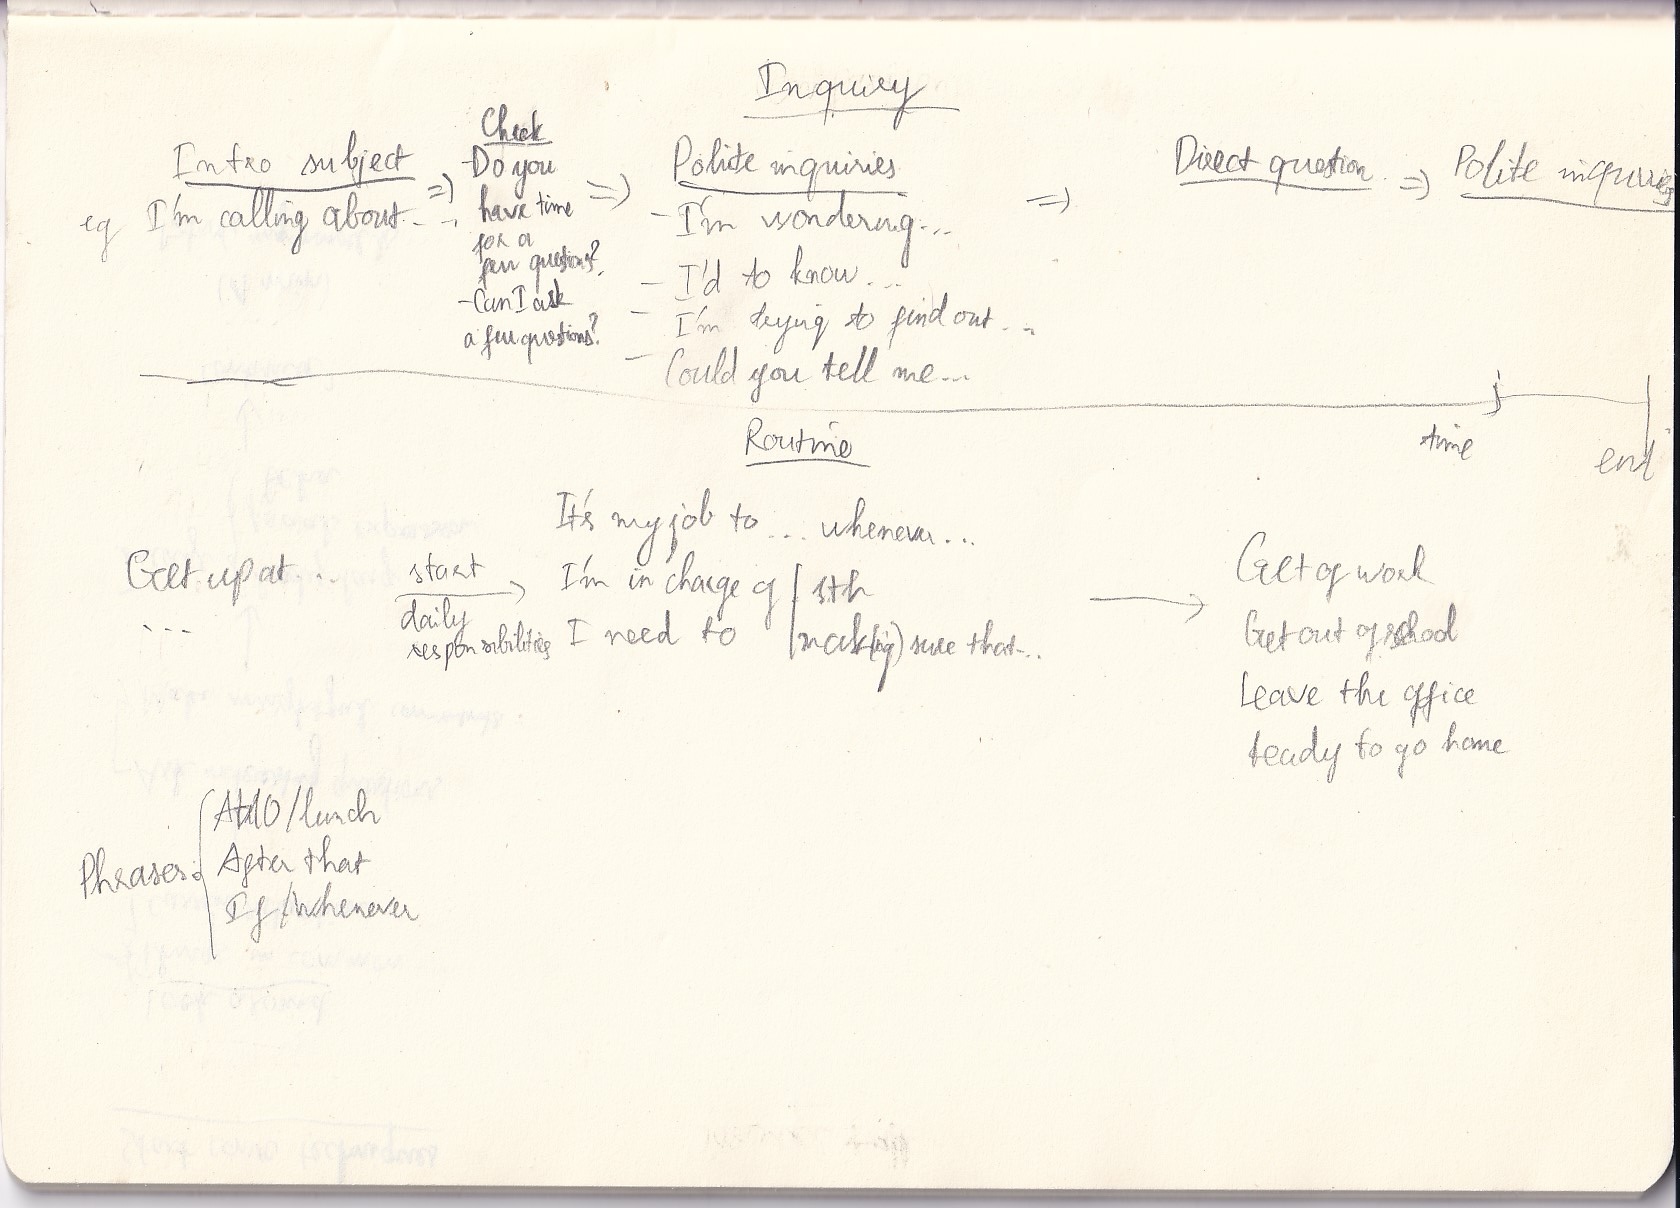 Inquiry
Intro subject
eg I'm calling about...
=>
Check
- Do you
have time
for a
few questions?
- Can I ask
a few questions?
=>
Polite inquiries
- I'm wondering...
- I'd to know...
- I'm trying to find out...
- Could you tell me...
=>
Direct question => Polite inquiries
time
end
Routine
It's my job to ... whenever...
Get up at ...
...
start
daily
responsibilities
I'm in charge of
I need to
sth
mak(ing) sure that...
Get of work
Get out of school
Leave the office
ready to go home
Phrases:
At 10/lunch
After that
If/whenever